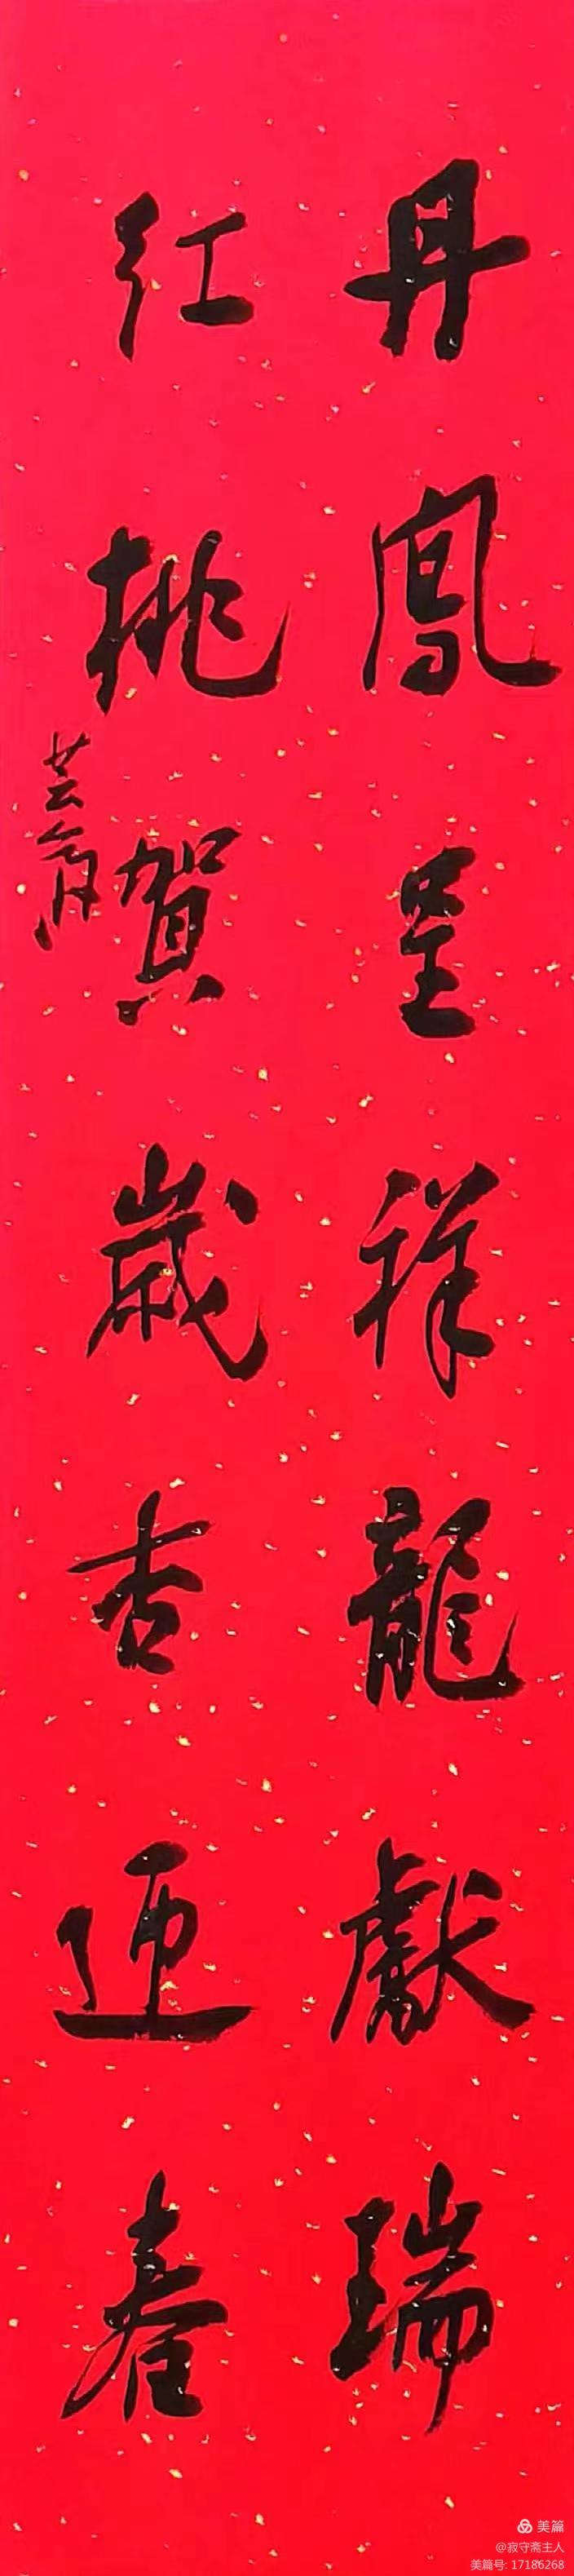 丹鳳呈祥龍獻瑞
红桃賀歲杏迎春
美篇
@寂守斋主人
美篇号: 17186268